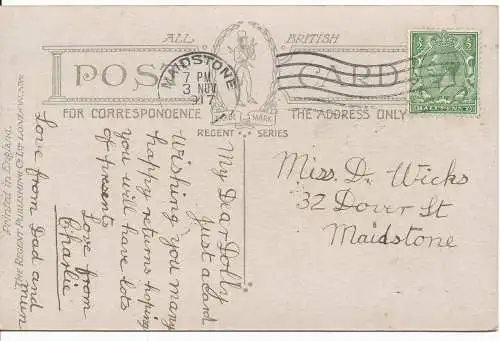 ALL BRITISH
POST CARD
MAIDSTONE
7 PM
3 NOV
17
HALFPENNY
FOR CORRESPONDENCE
THE ADDRESS ONLY
TRADE MARK
REGENT SERIES
My Dear Dolly
Just a card
Wishing you many
happy returns hoping
you will have lots
of presents
Love from
Charlie
Love from Dad and
mum
Miss D. Wicks
32 Dover St
Maidstone
Printed in England.
THE REGENT PUBLISHING CO LTD LONDON